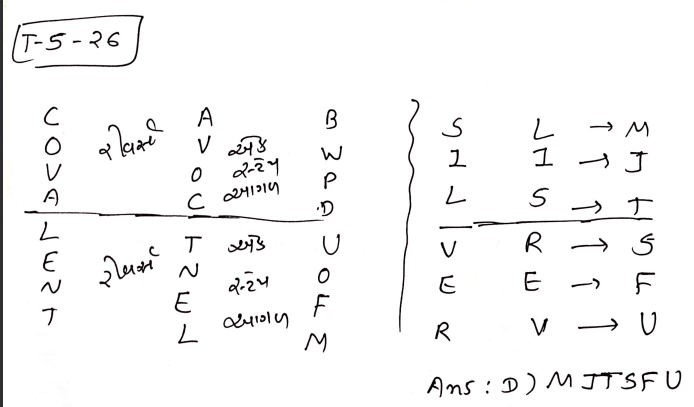 T-5-26
C રીવર્સ A B S L → M
O V એક W I I → J
V O સ્ટેપ P L S → T
A C આગળ D
L T એક U V R → S
E રીવર્સ N સ્ટેપ O E E → F
N E આગળ F R V → U
T L M
Ans : D) MJTSFU